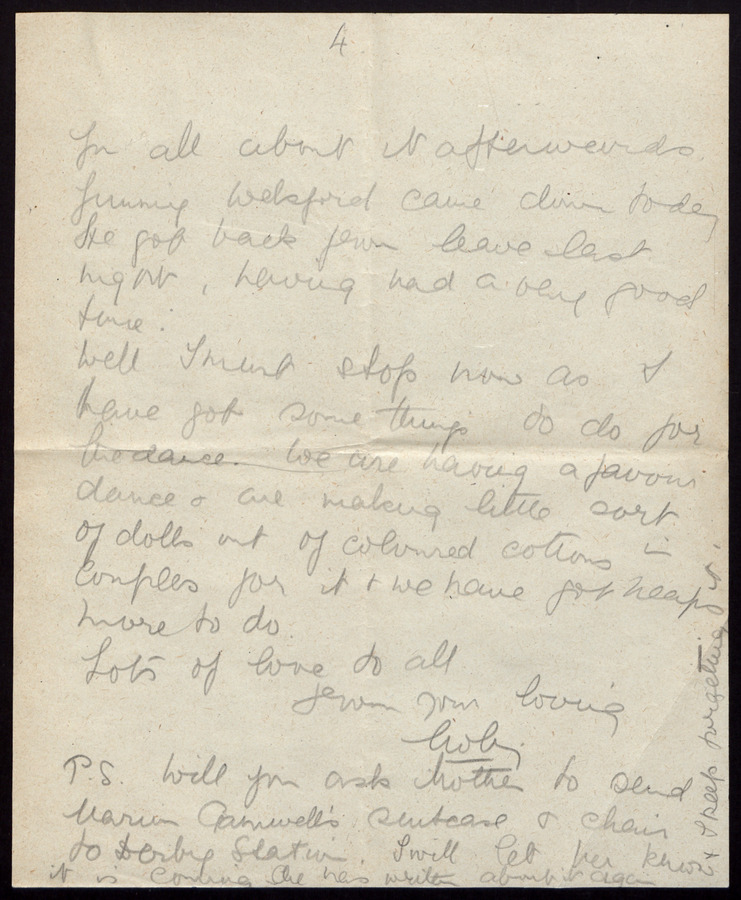 4
you all about it afterwards.
Jimmy Welsford came down today
He got back from leave last
night, having had a very good
time.
Well I must stop now as I
have got some things to do for
the dance. We are having a favour
dance & are making little sort
of dolls out of coloured cottons in
couples for it & we have got heaps
more to do
Lots of love to all
from your loving
P.S. Will you ask Mother to send
Marion Gamwell's suitcase & chain
to Derby Station. I will let her know
it is coming She has written about it again
& I keep forgetting it.